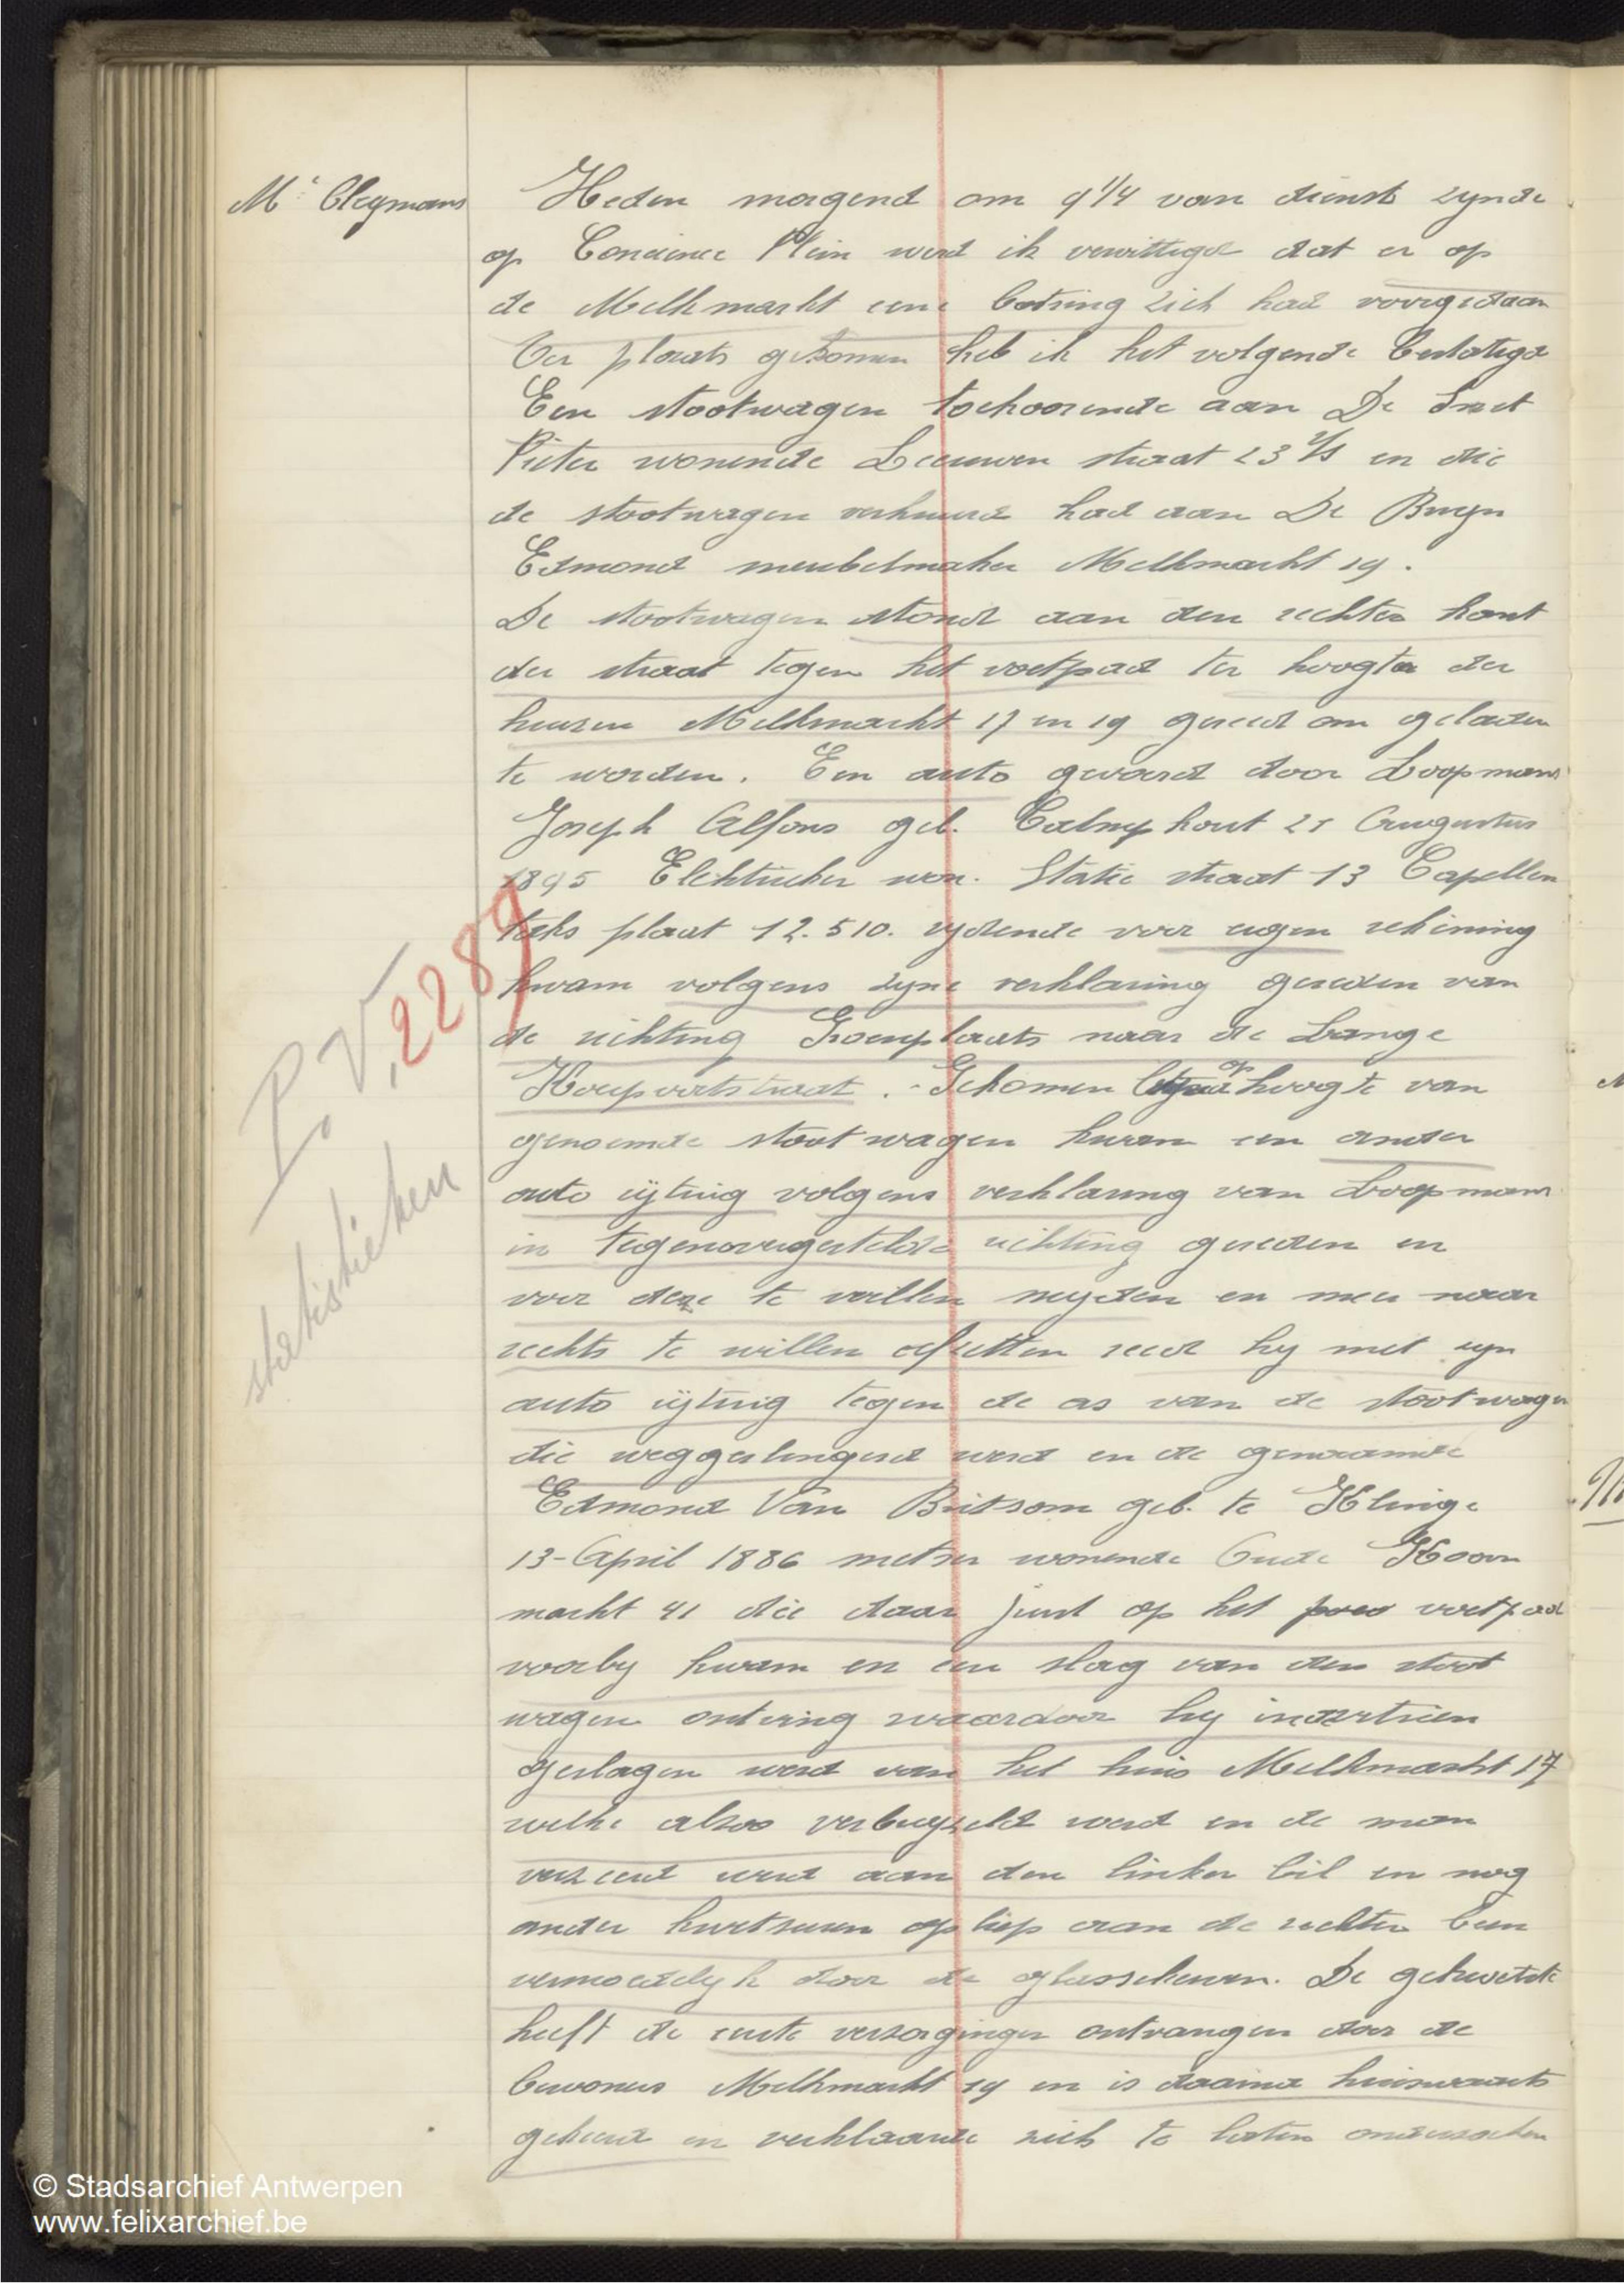 Mr Cleymans
Heden morgend om 9 1/4 van dienst zynde
op Concience Plein werd ik verwittigd dat er op
de Melkmarkt eene botsing zich had voorgedaan
Ter plaats gekomen heb ik het volgende bestatigd
Een stootwagen toehoorende aan De Smet
Pieter wonende Leeuwen straat 23 en die
de stootwagen verhuurd had aan De Bruyn
Edmond meubelmaker Melkmarkt 19.
De stootwagen stond aan den rechter kant
der straat tegen het voetpad ter hoogte der
huizen Melkmarkt 17 en 19 gereed om geladen
te worden. Een auto gevoerd door Loopmans
Joseph Alfons geb. Calmphout 21 Augustus
1895 Elektrieker won. Statie straat 13 Capellen
taks plaat 12.510. rydende voor eigen rekening
kwam volgens zyne verklaring gereden van
de richting Groenplaats naar de Lange
Koepoortstraat. Gekomen op hoogte van
genoemde stootwagen kwam een ander
auto ijtuig volgens verklaring van Loopmans
in tegenovergestelde richting gereden en
voor deze te willen meyden en meer naar
rechts te willen afzetten reed hy met zyn
auto ijtuig tegen de as van de stootwagen
die weggeslingerd werd en de genaamde
Edmond Van Britsom geb. te Klinge
13-April 1886 metser wonende Oude Koorn
markt 41 die daar juist op het voetpad
voorby kwam en een slag van den stoot
wagen ontving waardoor hy in
geslagen werd van het huis Melkmarkt 17
welke alzoo verbryzeld werd en de man
bezeerd werd aan den linker bil en nog
ander kwetsuren op liep aan de rechter been
vermoedelyk door de glasscherven. De gekwetste
heeft de eerste verzorgingen ontvangen door de
bewoners Melkmarkt 19 en is daarna huiswaarts
gekeerd en verklaarde zich te laten onderzoeken
P.V. 2289
statistieken
© Stadsarchief Antwerpen
www.felixarchief.be